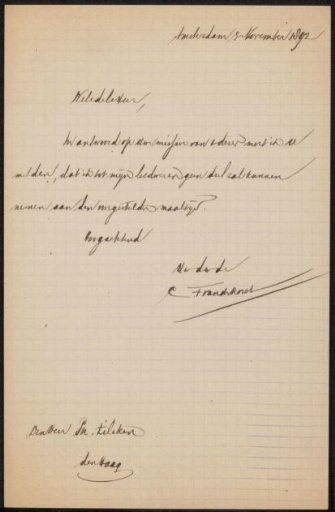 Amsterdam 8 November 1892
Weledele Heer,
In antwoord op Uw missive van deze moet ik U
melden, dat ik tot mijn leedwezen geen deel zal kunnen
nemen aan den voorgestelden maaltijd.
Hoogachtend
Uw dw dr
C
Den Heer Ph. Zilcken
den Haag